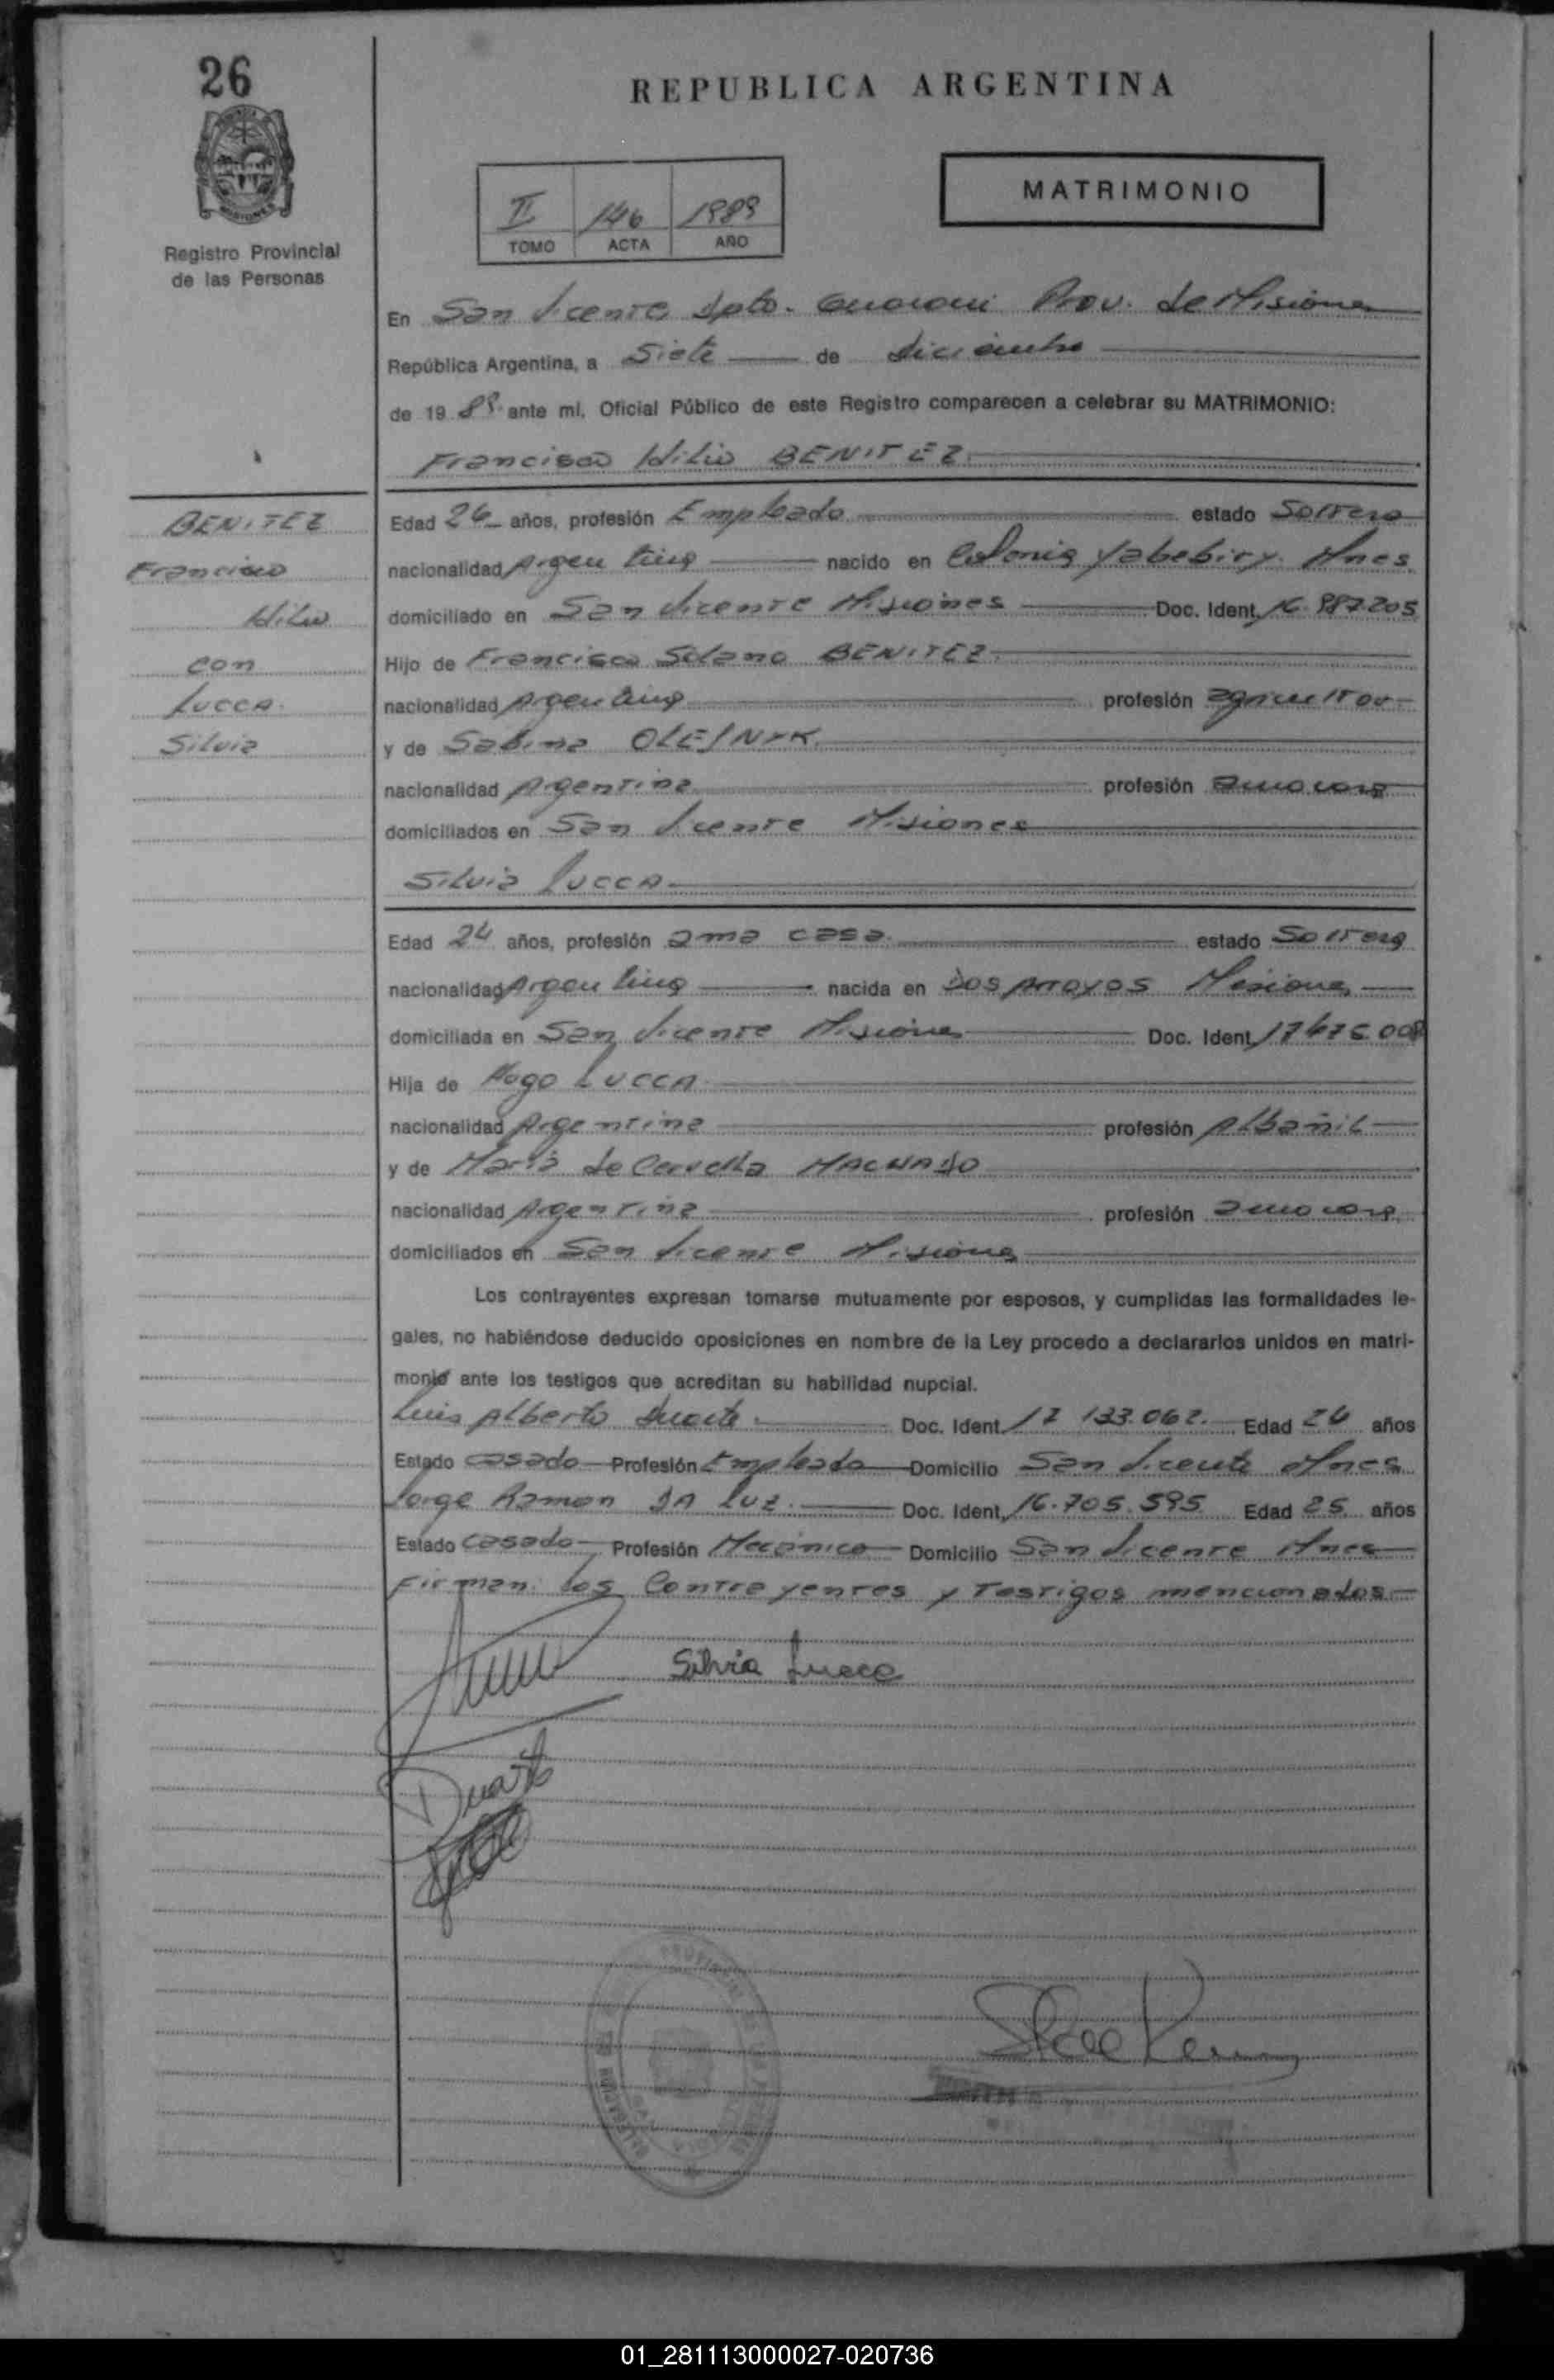 26
REPUBLICA ARGENTINA
MISIONES
Registro Provincial
de las Personas
II 146 1989
TOMO ACTA AÑO
MATRIMONIO
En San Vicente Dpto. Guarani Prov. de Misiones
República Argentina, a Siete de diciembre
de 19 89 ante mí, Oficial Público de este Registro comparecen a celebrar su MATRIMONIO:
Francisco Hilio BENITEZ
BENITEZ
Francisco
Hilio
con
LUCCA
Silvia
Edad 26 años, profesión Empleado estado Soltero
nacionalidad Argentina nacido en Colonia Yabebiry Mnes
domiciliado en San Vicente Misiones Doc. Ident. 16.987.205
Hijo de Francisco Solano BENITEZ
nacionalidad Argentina profesión agricultor
y de Sabina OLEJNYK
nacionalidad Argentina profesión ama casa
domiciliados en San Vicente Misiones
Silvia LUCCA
Edad 24 años, profesión ama casa estado Soltera
nacionalidad Argentina nacida en Dos Arroyos Misiones
domiciliada en San Vicente Misiones Doc. Ident. 17.476.008
Hija de Hugo LUCCA
nacionalidad Argentina profesión Albañil
y de Maria de MACHADO
nacionalidad Argentina profesión ama casa
domiciliados en San Vicente Misiones
Los contrayentes expresan tomarse mutuamente por esposos, y cumplidas las formalidades le-
gales, no habiéndose deducido oposiciones en nombre de la Ley procedo a declararlos unidos en matri-
monio ante los testigos que acreditan su habilidad nupcial.
Luis Alberto Duarte Doc. Ident. 17 133.062. Edad 26 años
Estado casado Profesión Empleado Domicilio San Vicente Mnes
Jorge Ramon DA LUZ Doc. Ident. 16.705.595 Edad 25 años
Estado casado Profesión Mecánico Domicilio San Vicente Mnes
Firman los Contrayentes y Testigos mencionados
Silvia Lucca
Duarte
01_281113000027-020736